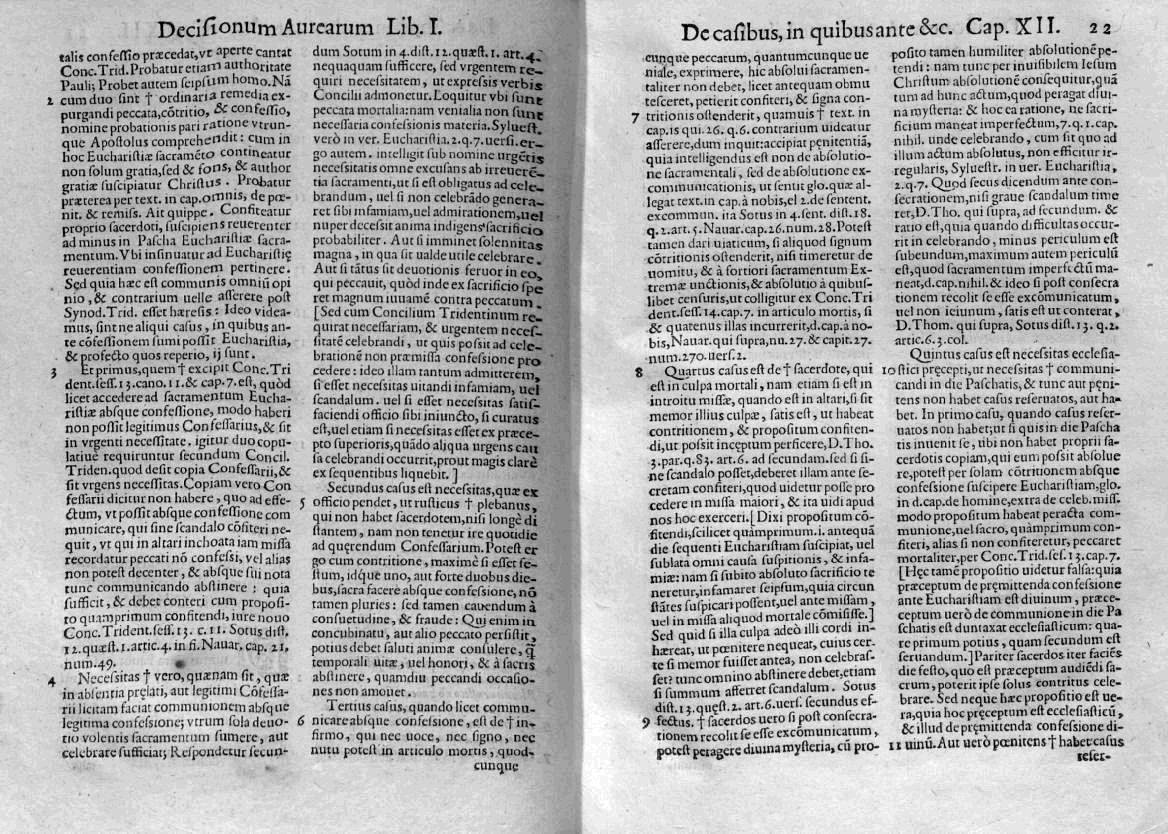 Decisionum Aurearum Lib. I.
talis confessio præcedat, vt aperte cantat
Conc. Trid. Probatur etiam authoritate
Pauli; Probet autem seipsum homo. Nã
2 cum duo sint † ordinaria remedia ex-
purgandi peccata, cõtritio, & confessio,
nomine probationis pari ratione vtrun-
que Apostolus comprehendit: cum in
hoc Eucharistiæ sacramẽto contineatur
non solum gratia, sed & fons, & author
gratiæ suscipiatur Christus. Probatur
præterea per text. in cap. omnis, de pœ-
nit. & remiss. Ait quippe. Confiteatur
proprio sacerdoti, suscipiens reuerenter
ad minus in Pascha Eucharistiæ sacra-
mentum. Vbi insinuatur ad Eucharistiæ
reuerentiam confessionem pertinere.
Sed quia hæc est communis omniũ opi
nio, & contrarium uelle asserere post
Synod. Trid. esset hæresis: Ideo videa-
mus, sint ne aliqui casus, in quibus an-
te cõfessionem sumi possit Eucharistia,
& profecto quos reperio, ij sunt.
3 Et primus, quem † excipit Conc. Tri
dent. sess. 13. cano. 11. & cap. 7. est, quòd
licet accedere ad sacramentum Eucha-
ristiæ absque confessione, modo haberi
non possit legitimus Confessarius, & sit
in vrgenti necessitate. igitur duo copu-
latiuè requiruntur secundum Concil.
Triden. quod desit copia Confessarii, &
sit vrgens necessitas. Copiam vero Con
fessarii dicitur non habere, quo ad effe-
ctum, vt possit absque confessione com
municare, qui sine scandalo cõfiteri ne-
quit, vt qui in altari inchoata iam missa
recordatur peccati nõ confessi, vel alias
non potest decenter, & absque sui nota
tunc communicando abstinere: quia
sufficit, & debet conteri cum proposi-
to quamprimum confitendi, iure nouo
Conc. Trident. sess. 13. c. 11. Sotus dist.
12. quæst. 1. artic. 4. in fi. Nauar. cap. 21.
num. 49.
4 Necessitas † vero, quænam sit, quæ
in absentia pręlati, aut legitimi Cõfessa-
rii licitam faciat communionem absque
legitima confessione; vtrum sola deuo-
tio volentis sacramentum sumere, aut
celebrare sufficiat; Respondetur secun-
dum Sotum in 4. dist. 12. quæst. 1. art. 4.
nequaquam sufficere, sed vrgentem re-
quiri necessitatem, ut expressis verbis
Concilii admonetur. Loquitur vbi sunt
peccata mortalia: nam venialia non sunt
necessaria confessionis materia. Syluest.
verò in ver. Eucharistia. 2. q. 7. uersi. er-
go autem. intelligit sub nomine urgẽtis
necessitatis omne excusans ab irreuerẽ-
tia sacramenti, ut si est obligatus ad cele-
brandum, uel si non celebrãdo genera-
ret sibi infamiam, uel admirationem, uel
nuper decessit anima indigens sacrificio
probabiliter. Aut si imminet solennitas
magna, in qua sit ualde utile celebrare.
Aut si tãtus sit deuotionis feruor in eo,
qui peccauit, quòd inde ex sacrificio spe
ret magnum iuuamẽ contra peccatum.
[Sed cum Concilium Tridentinum re-
quirat necessariam, & urgentem neces-
sitatẽ celebrandi, ut quis possit ad cele-
brationẽ non præmissa confessione pro
cedere: ideo illam tantum admitterem,
si esset necessitas uitandi infamiam, uel
scandalum. uel si esset necessitas satis-
faciendi officio sibi iniuncto, si curatus
est, uel etiam si necessitas esset ex præce-
pto superioris, quãdo aliqua urgens cau
sa celebrandi occurrit, prout magis clarè
ex sequentibus liquebit.]
Secundus casus est necessitas, quæ ex
5 officio pendet, ut rusticus † plebanus,
qui non habet sacerdotem, nisi longè di
stantem, nam non tenetur ire quotidie
ad quęrendum Confessarium. Potest er
go cum contritione, maximè si esset fe-
stum, idq́ue uno, aut forte duobus die-
bus, sacra facere absque confessione, nõ
tamen pluries: sed tamen cauendum à
consuetudine, & fraude: Qui enim in
concubinatu, aut alio peccato persistit,
potius debet saluti animæ consulere, q̃
temporali uitæ, uel honori, & à sacris
abstinere, quamdiu peccandi occasio-
nes non amouet.
Tertius casus, quando licet commu-
6 nicare absque confessione, est de † in-
firmo, qui nec uoce, nec signo, nec
nutu potest in articulo mortis, quod-
cunque
De casibus, in quibus ante &c. Cap. XII. 22
cunque peccatum, quantumcunque ue
niale, exprimere, hic absolui sacramen-
taliter non debet, licet antequam obmu
tesceret, petierit confiteri, & signa con-
7 tritionis ostenderit, quamuis † text. in
cap. is qui. 26. q. 6. contrarium uideatur
asserere, dum inquit: accipiat pęnitentiã,
quia intelligendus est non de absolutio-
ne sacramentali, sed de absolutione ex-
communicationis, ut sentit glo. quæ al-
legat text. in cap. à nobis, el 2. de sentent.
excommun. ita Sotus in 4. sent. dist. 18.
q. 2. art. 5. Nauar. cap. 26. num. 28. Potest
tamen dari uiaticum, si aliquod signum
cõtritionis ostenderit, nisi timeretur de
uomitu, & à fortiori sacramentum Ex-
tremæ unctionis, & absolutio à quibus-
libet censuris, ut colligitur ex Conc. Tri
dent. sess. 14. cap. 7. in articulo mortis, si
& quatenus illas incurrerit, d. cap. à no-
bis, Nauar. qui supra, nu. 27. & capit. 27.
num. 270. uers. 2.
8 Quartus casus est de † sacerdote, qui
est in culpa mortali, nam etiam si est in
introitu missæ, quando est in altari, si sit
memor illius culpæ, satis est, ut habeat
contritionem, & propositum confiten-
di, ut possit inceptum perficere, D. Tho.
3. par. q. 83. art. 6. ad secundam. sed si si-
ne scandalo posset, deberet illam ante se-
cretam confiteri, quod uidetur posse pro
cedere in missa maiori, & ita uidi apud
nos hoc exerceri. [Dixi propositum cõ-
fitendi, scilicet quamprimum. i. antequã
die sequenti Eucharistiam suscipiat, uel
sublata omni causa suspitionis, & infa-
miæ: nam si subito absoluto sacrificio te
neretur, infamaret seipsum, quia circun
stãtes suspicari possent, uel ante missam,
uel in missa aliquod mortale cõmisisse.]
Sed quid si illa culpa adeò illi cordi in-
hæreat, ut pœnitere nequeat, cuius cer-
te si memor fuisset antea, non celebras-
set? tunc omnino abstinere debet, etiam
si summum afferret scandalum. Sotus
dist. 13. quęst. 2. art. 6. uers. secundus ef-
9 fectus. † sacerdos uero si post consecra-
tionem recolit se esse excõmunicatum,
potest peragere diuina mysteria, cũ pro-
posito tamen humiliter absolutionẽ pe-
tendi: nam tunc per inuisibilem Iesum
Christum absolutionẽ consequitur, quã
tum ad hunc actum, quod peragat diui-
na mysteria: & hoc ea ratione, ne sacri-
ficium maneat imperfectum, 7. q. 1. cap.
nihil. unde celebrando, cum sit quo ad
illum actum absolutus, non efficitur ir-
regularis, Syluestr. in uer. Eucharistia,
2. q. 7. Quod secus dicendum ante con-
secrationem, nisi graue scandalum time
ret, D. Tho. qui supra, ad secundum. &
ratio est, quia quando difficultas occur-
rit in celebrando, minus periculum est
subeundum, maximum autem periculũ
est, quod sacramentum imperfectũ ma-
neat, d. cap. nihil. & ideo si post consecra
tionem recolit se esse excõmunicatum,
uel non ieiunum, satis est ut conterat,
D. Thom. qui supra, Sotus dist. 13. q. 2.
artic. 6. 3. col.
Quintus casus est necessitas ecclesia-
10 stici pręcepti, ut necessitas † communi-
candi in die Paschatis, & tunc aut pęni-
tens non habet casus reseruatos, aut ha-
bet. In primo casu, quando casus reser-
uatos non habet; ut si quis in die Pascha
tis inuenit se, ubi non habet proprii sa-
cerdotis copiam, qui eum possit absolue
re, potest per solam cõtritionem absque
confessione suscipere Eucharistiam, glo.
in d. cap. de homine, extra de celeb. miss.
modo propositum habeat peracta com-
munione, uel sacro, quàmprimum con-
fiteri, alias si non confiteretur, peccaret
mortaliter, per Conc. Trid. ses. 13. cap. 7.
[Hęc tamẽ propositio uidetur falsa: quia
præceptum de pręmittenda confessione
ante Eucharistiam est diuinum, præce-
ptum uerò de communione in die Pa
schatis est duntaxat ecclesiasticum: qua-
re primum potius, quam secundum est
seruandum.] Pariter sacerdos iter faciẽs
die festo, quo est præceptum audiẽdi sa-
crum, poterit ipse solus contritus cele-
brare. Sed neque hæc propositio est ue-
ra, quia hoc pręceptum est ecclesiasticũ,
& illud de pręmittenda confessione di-
11 uinũ. Aut uerò pœnitens † habet casus
reser-